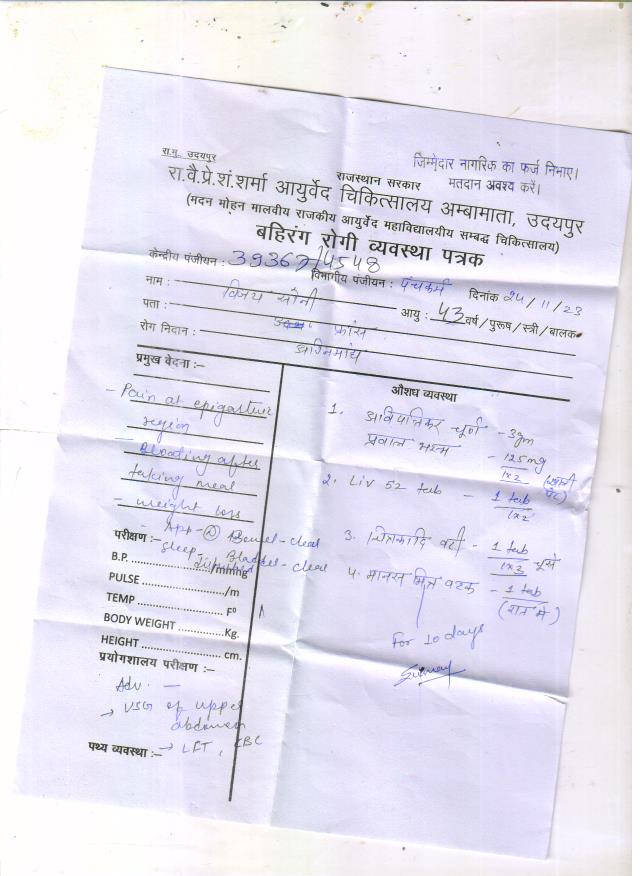 रा.मु. उदयपुर
जिम्मेदार नागरिक का फर्ज निभाए।
मतदान अवश्य करें।
राजस्थान सरकार
रा.वै.प्रे.शं.शर्मा आयुर्वेद चिकित्सालय अम्बामाता, उदयपुर
(मदन मोहन मालवीय राजकीय आयुर्वेद महाविद्यालयीय सम्बद्ध चिकित्सालय)
बहिरंग रोगी व्यवस्था पत्रक
केन्द्रीय पंजीयन : 39367/4548
विभागीय पंजीयन : पंचकर्म दिनांक 24/11/23
नाम : विजय सोनी आयु : 43 वर्ष/पुरूष/स्त्री/बालक
पता : फ्रांस
रोग निदान : अग्निमांद्य
प्रमुख वेदना :–
- Pain at epigastric
region
- Bloating after
taking meal
- weight loss
- App - Bowel - clear
Sleep Bladder - clear
परीक्षण :–
B.P. /mmhg
PULSE /m
TEMP F⁰
BODY WEIGHT Kg.
HEIGHT cm.
प्रयोगशालय परीक्षण :–
Adv. —
→ USG of upper
abdomen
→ LFT, CBC
पथ्य व्यवस्था :–
औशध व्यवस्था
1. अविपत्तिकर चूर्ण - 3gm
प्रवाल भस्म - 125mg
1x2 (खाली पेट)
2. Liv 52 tab - 1 tab
1x2
3. चित्रकादि वटी - 1 tab चूसे
1x3
4. मानस मित्र वटक - 1 tab
(रात मे)
For 10 days